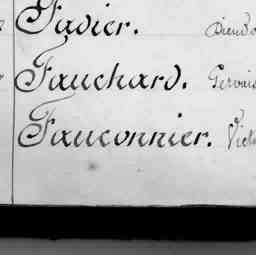 Favier. Dieudo
Fauchard. Gervais
Fauconnier. Victo